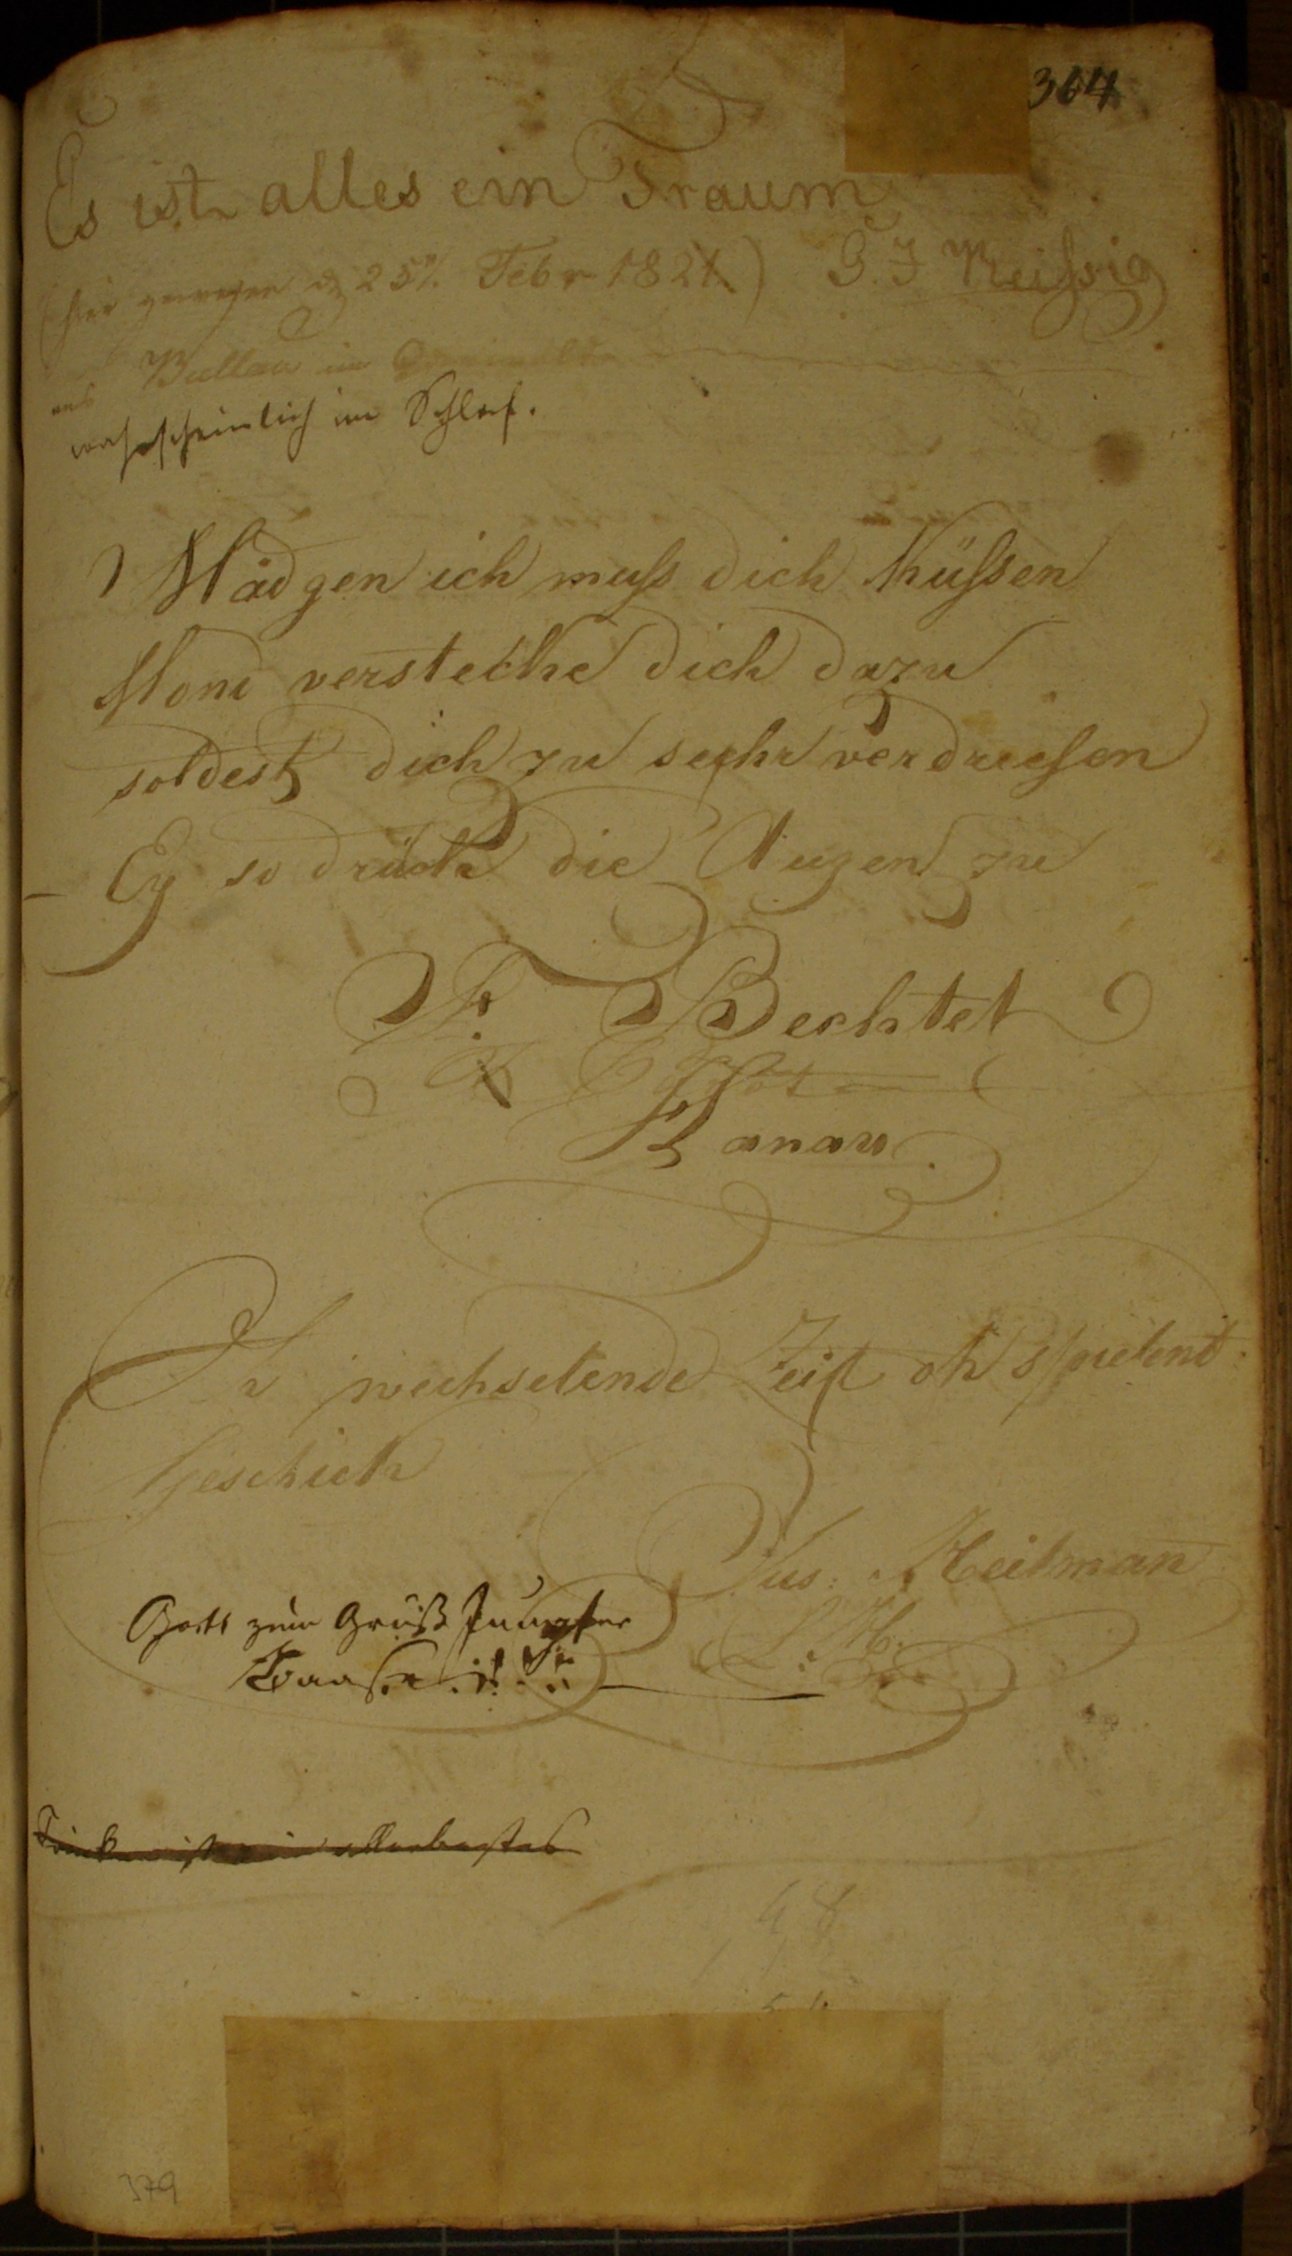 364
Es ist alles ein Traum
(hier gewesen d 25/. Febr 1821) G. F
aus Bullau im
wahrscheinlich im Schlaf.
Mädgen ich muſs dich Küſsen
Mond verstecke dich dazu
soldest dich zu sehr verdrieſsen
Ey so drücke die Augen zu
F. Bechtel
Hanau.
wechselende Zeit oh spielend
Geschick
Jus. Heilman
Gott zum Gruß Jungfer
Baase
48
379